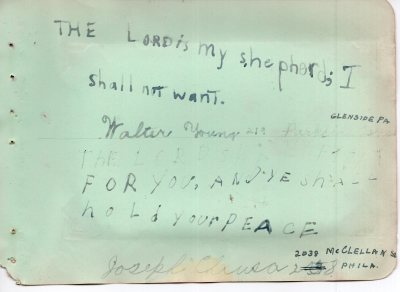 THE LORD is my shepherd; I
shall not want.
GLENSIDE PA
Walter Young 213
THE LORD
FOR YOU, AND YE SHALL
hold your PEACE
2039 McCLELLAN St
Joseph PHILA.